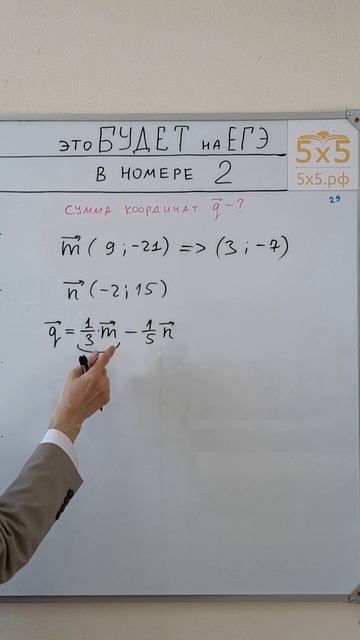 это БУДЕТ на ЕГЭ
в номере 2
5x5
5x5.рф
29
сумма координат q⃗ - ?
m⃗ ( 9 ; -21) => (3 ; -7)
n⃗ (-2; 15)
q⃗ = 1/3 · m⃗ - 1/5 n⃗